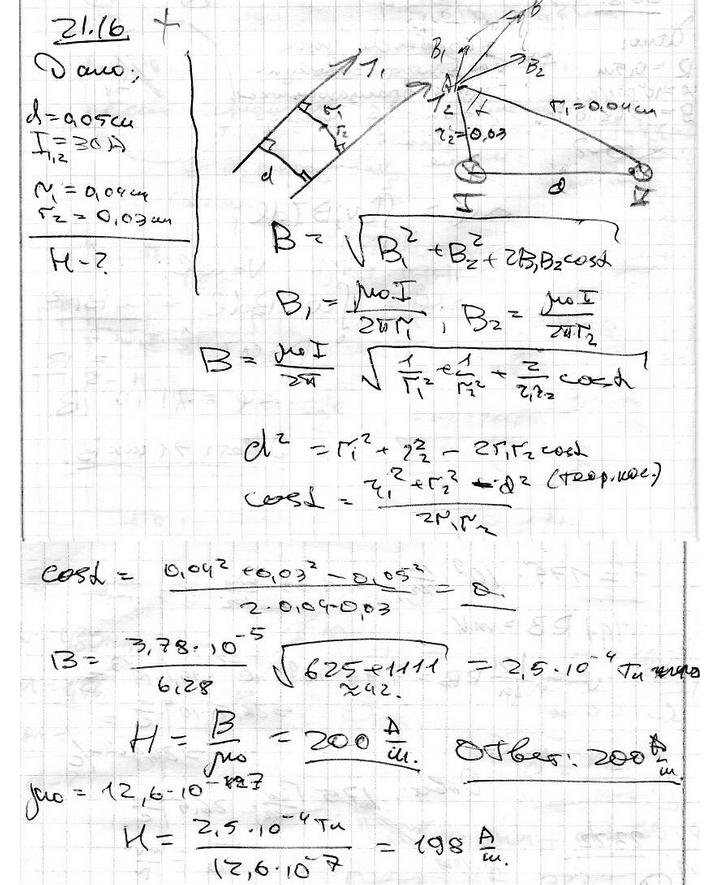 21.16 +
Дано:
d = 0,05 м
I₁,₂ = 30 А
r₁ = 0,04 м
r₂ = 0,03 м
H - ?
I₁
I₂
r₁
r₂
d
B
B₁
B₂
A
r₁ = 0,04 м
r₂ = 0,03
d
B = √(B₁² + B₂² + 2B₁B₂cosα)
B₁ = μ₀I / 2πr₁ ; B₂ = μ₀I / 2πr₂
B = μ₀I / 2π √(1/r₁² + 1/r₂² + 2/r₁r₂ cosα)
d² = r₁² + r₂² - 2r₁r₂cosα
cosα = (r₁² + r₂² - d²) / 2r₁r₂ (теор. кос.)
cosα = (0,04² + 0,03² - 0,05²) / (2·0,04·0,03) = 0
B = 3,78·10⁻⁵ / 6,28 √(625+1111) ≈42. = 2,5·10⁻⁴ Тл
H = B/μ₀ = 200 А/м. Ответ: 200 А/м.
μ₀ = 12,6·10⁻⁷
H = 2,5·10⁻⁴ Тл / 12,6·10⁻⁷ = 198 А/м.